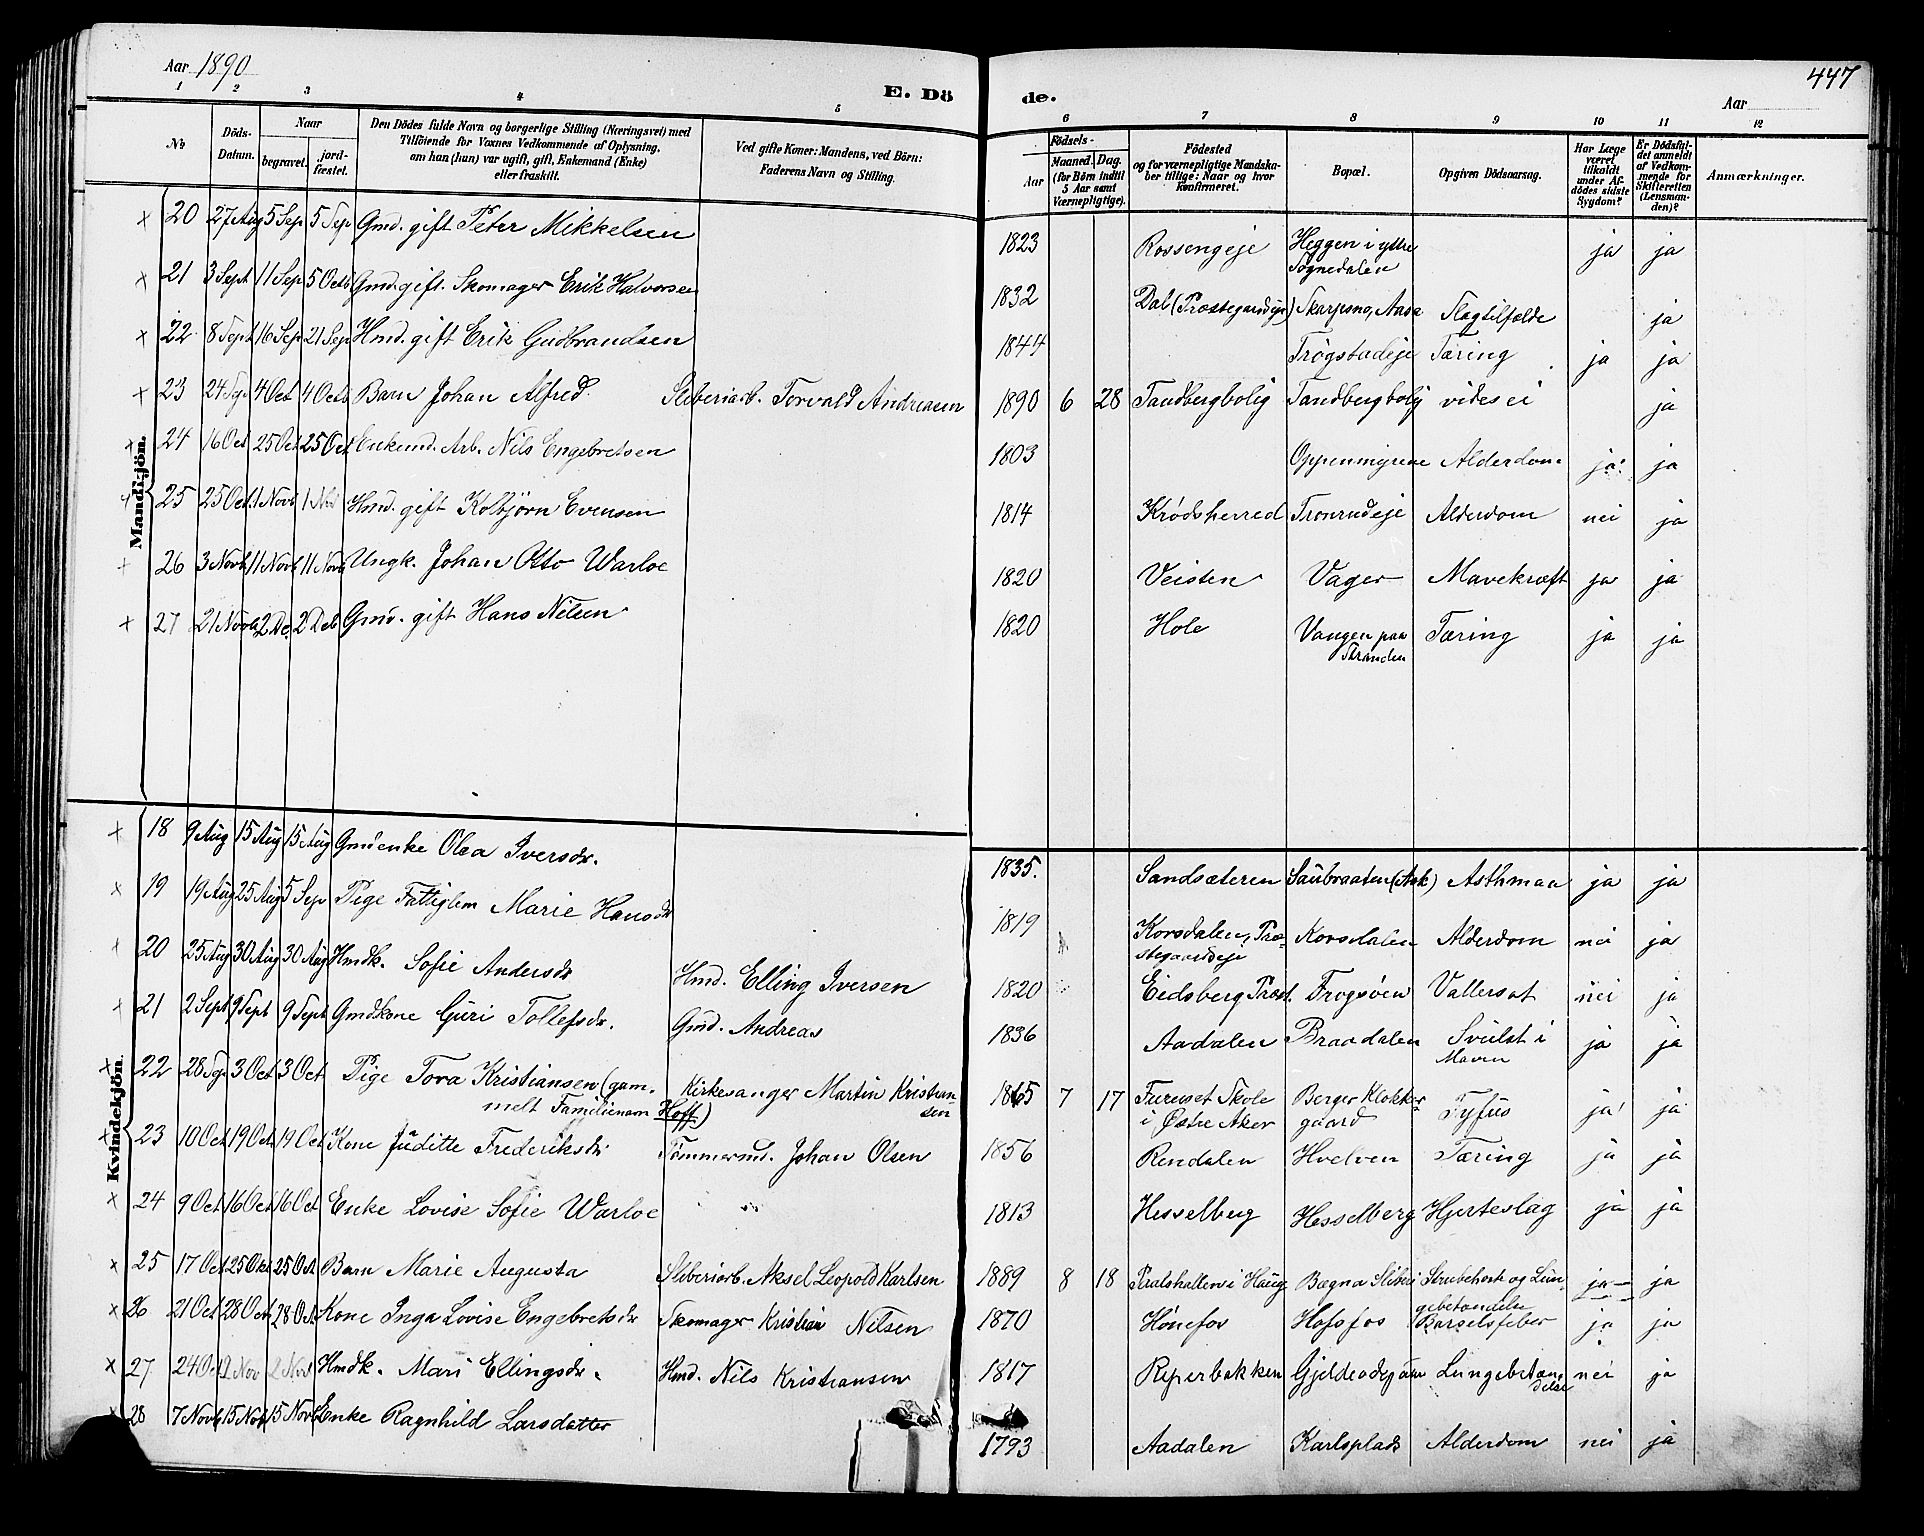 Aar 1890
E. Dö de.
Aar
447
1 2 3 4 5 6 7 8 9 10 11 12
No
Döds-Datum.
Naar
begravet.
jord-fæstet.
Den Dödes fulde Navn og borgerlige Stilling (Næringsvei) med
Tilföiende for Voxnes Vedkommende af Oplysning,
om han (hun) var ugift, gift, Enkemand (Enke)
eller fraskilt.
Ved gifte Koner: Mandens, ved Börn:
Faderens Navn og Stilling.
Födsels-
Aar
Maaned. Dag.
(for Börn indtil
5 Aar samt
Værnepligtige).
Födested
og for værnepligtige Mandska-
ber tillige: Naar og hvor
Konfirmeret.
Bopæl.
Opgiven Dödsaarsag.
Har Læge
været
tilkaldt
under Af-
dödes sidste
Sygdom?
Er Dödsfal-
det anmeldt
af Vedkom-
mende for
Skifteretten
(Lensman-
den)?
Anmærkninger.
Mandkjön.
x 20 27 Aug 5 Sep 5 Sep Gmd. gift Peter Mikkelsen 1823 Rossengeje Heggen i ytre Sognedalen ja ja
x 21 3 Sept 11 Sep 5 Octb Gmd. gift. Skomager Erik Halvorsen 1832 Dal (Præstegaardseje) Skarpsno, Aasa Slagtilfælde ja
x 22 8 Sept 16 Sep 21 Sep Hmd. gift Erik Gudbrandsen 1844 Trøgstadeje Tæring ja ja
x 23 24 Sp. 4 Oct 4 Octb Barn Johan Alfred Sliberiarb. Torvald Andreasen 1890 6 28 Tandbergbolig Tandbergbolig vides ei ja
x 24 16 Oct 25 Oct 25 Oct Enkemd. Arb. Nils Engebretsen 1803 Oppenmyrene Alderdom ja ja
x 25 25 Oct 1 Novb 1 Nov Hmd. gift Kolbjörn Evensen 1814 Krødsherred Tronrudeje Alderdom nei ja
x 26 3 Novb 11 Novb 11 Novb Ungk. Johan Otto Warloe 1820 Veisten Vager Mavekræft ja ja
x 27 21 Novb 2 De. 2 Deb Gmd. gift Hans Nilsen 1820 Hole Vangen paa Stranden Tæring ja ja
Kvindekjön.
x 18 9 Aug 15 Aug 15 Aug Gmdenke Olea Iversdr. 1835. Sandsæteren Saubraaten (Ask) Asthmaa ja ja
x 19 19 Aug 25 Aug 5 Sep Pige Fattiglem Marie Hansdr 1819 Korsdalen, Præstegaardseje Korsdalen Alderdom nei ja
x 20 25 Aug 30 Aug 30 Aug Hmdk. Sofie Andersdr Hmd. Elling Iversen 1820 Eidsberg Præst. Frogsøen Vattersot nei ja
x 21 2 Sept 9 Sept 9 Sept Gmdkone Guri Tollefsdr. Gmd. Andreas 1836 Aadalen Braadalen Svulst i Maven ja ja
x 22 28 Sp. 3 Oct 3 Oct Pige Tora Kristiansen (gam-
melt Familienavn Hoff) Kirkesanger Martin Kristiansen 1865 7 17 Furuset Skole i Østre Aker Berger Klokkergaard Tyfus ja ja
x 23 10 Oct 19 Oct 19 Oct Kone Juditte Frederiksdr Tømmermd. Johan Olsen 1856 Rendalen Hvelven Tæring ja ja
x 24 9 Oct 16 Oct 16 Oct Enke Lovise Sofie Warloe 1813 Hesselberg Hesselberg Hjerteslag ja ja
x 25 17 Oct 25 Okt 25 Oct Barn Marie Augusta Sliberiarb. Aksel Leopold Karlsen 1889 8 18 Pratshallen i Haug Bægna Sliberi Strubehoste og Lungebetændelse ja ja
x 26 21 Oct 28 Oct 28 Oct. Kone Inga Lovise Engebretsdr Skomager Kristian Nilsen 1870 Hönefos Hofsfos Barselsfeber ja ja
x 27 24 Oct 2 Nov 2 Nov Hmdk. Mari Ellingsdr. Hmd. Nils Kristiansen 1817 Reperbakken Lungebetændelse nei ja
x 28 7 Novb 15 Novb 15 Novb Enke Ragnhild Larsdatter 1793 Aadalen Karlsplads Alderdom nei ja